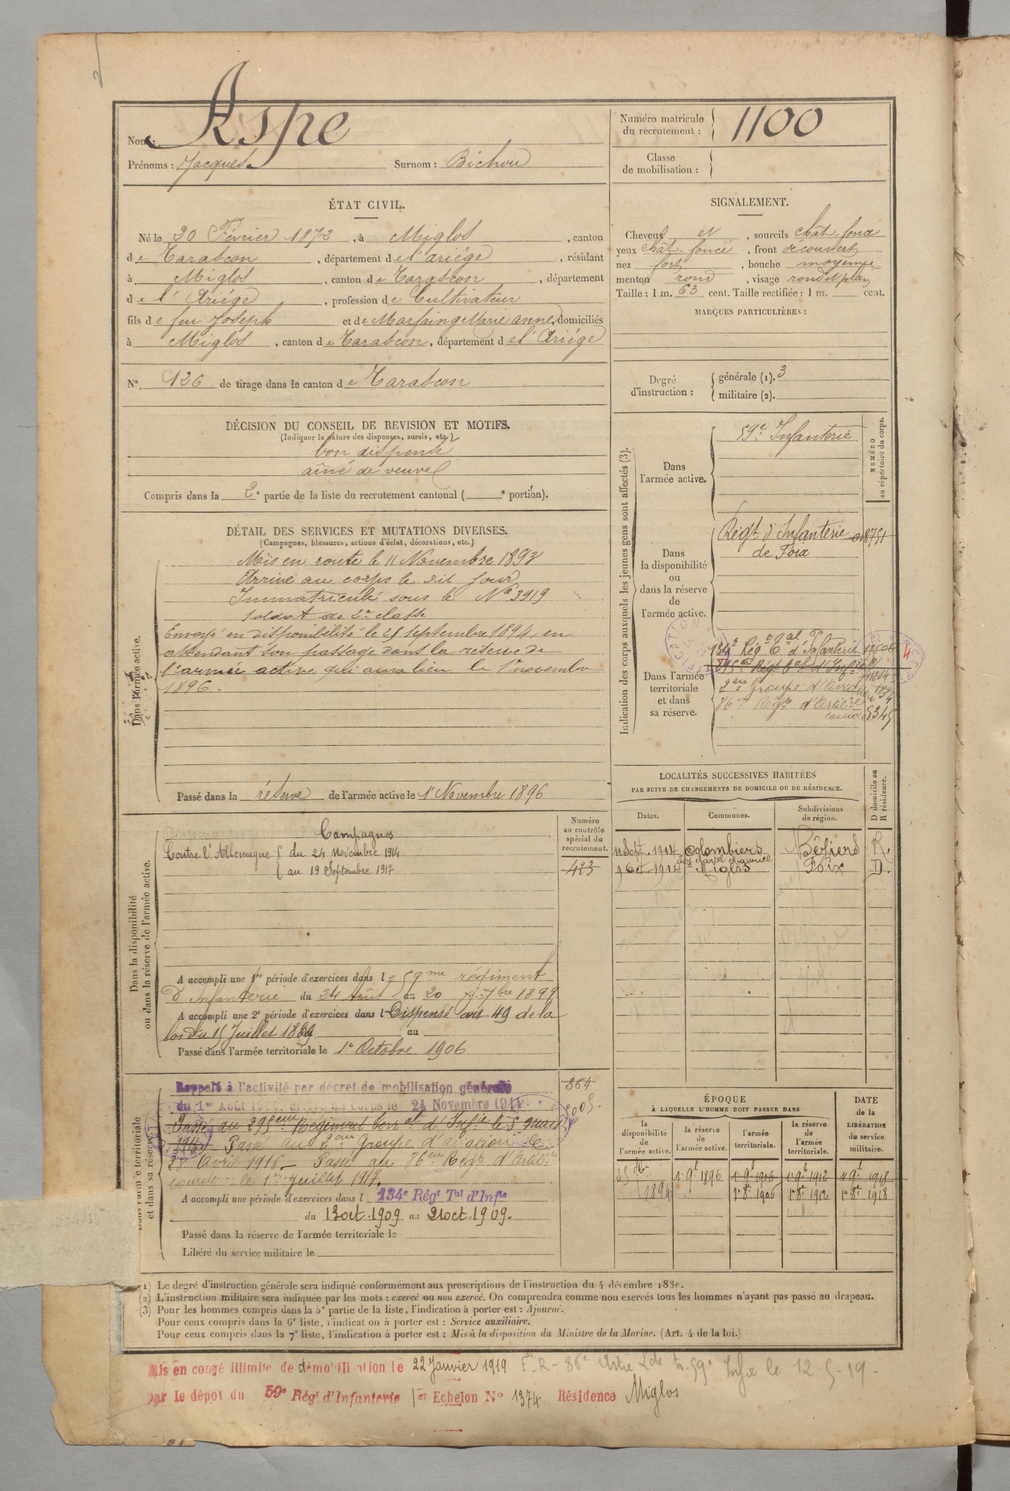 Aspe
Nom :
Prénoms : Jacques Surnom : Bichou
Numéro matricule
du recrutement : 1100
Classe
de mobilisation :
ÉTAT CIVIL.
Né le 20 Février 1872, à Miglos, canton
de Tarascon, département de l'Ariége, résidant
à Miglos, canton de Tarascon, département
de l'Ariége, profession de Cultivateur
fils de feu Joseph et de Marfaing Marie anne, domiciliés
à Miglos, canton de Tarascon, département de l'Ariége
N° 126 de tirage dans le canton de Tarascon
SIGNALEMENT.
Cheveux et, sourcils chat. foncé
yeux chat. foncé, front découvert
nez fort, bouche moyenne
menton rond, visage rond et plan
Taille : 1 m. 63 cent. Taille rectifiée : 1 m. cent.
MARQUES PARTICULIÈRES :
Degré
d'instruction :
générale (1). 3
militaire (2).
DÉCISION DU CONSEIL DE REVISION ET MOTIFS.
(Indiquer la nature des dispenses, sursis, etc.)
bon dispensé
aîné de veuve
Compris dans la 2e partie de la liste du recrutement cantonal ( e portion).
DÉTAIL DES SERVICES ET MUTATIONS DIVERSES.
(Campagnes, blessures, actions d'éclat, décorations, etc.)
Dans l'armée active.
Mis en route le 11 Novembre 1893
Arrivé au corps le dit jour
Immatriculé sous le N° 3919
Soldat de 2e classe
Envoyé en disponibilité le 25 septembre 1894, en
attendant son passage dans la réserve de
l'armée active qui aura lieu le 1er novembre
1896.
Passé dans la réserve de l'armée active le 1er Novembre 1896
Indication des corps auxquels les jeunes gens sont affectés (3).
NUMÉRO
au répertoire du corps.
Dans
l'armée active.
59e Infanterie
Dans
la disponibilité
ou
dans la réserve
de
l'armée active.
Régt d'Infanterie
de Foix
8751
Dans l'armée
territoriale
et dans
sa réserve.
134e Régt Tal d'Infanterie
2eme Groupe d'Aviation
86eme Régt d'Artillerie
lourde
5345
LOCALITÉS SUCCESSIVES HABITÉES
PAR SUITE DE CHANGEMENTS DE DOMICILE OU DE RÉSIDENCE.
Dates. Communes. Subdivisions
de région. D domicile ou
R résidence.
11 Sept. 1911 Colombiers Béziers R.
Miglos Foix D.
Dans la disponibilité
ou dans la réserve de l'armée active.
Numéro
au contrôle
spécial du
recrutement.
423
Campagnes
Contre l'Allemagne du 24 Novembre 1914
au 19 Septembre 1917
A accompli une 1re période d'exercices dans le 59me régiment
d'Infanterie du 24 Août au 20 7bre 1899
A accompli une 2e période d'exercices dans l Dispensé art 49 de la
loi du 15 Juillet 1889 au
Passé dans l'armée territoriale le 1er Octobre 1906
Dans l'armée territoriale
et dans sa réserve.
Rappelé à l'activité par décret de mobilisation générale
du 1er Août 1914. Arrivé au corps le 24 Novembre 1914
Passé au 2eme Groupe d'aviation le
25 Avril 1916. Passé au 86eme Régt d'Artillie
lourde le 1er juillet 1917.
A accompli une période d'exercices dans l 134e Régt Tal d'Infie
du 13 oct. 1909 au 21 oct. 1909.
Passé dans la réserve de l'armée territoriale le
Libéré du service militaire le
ÉPOQUE
À LAQUELLE L'HOMME DOIT PASSER DANS
DATE
de la
LIBÉRATION
du service
militaire.
la
disponibilité
de
l'armée active.
la réserve
de
l'armée active.
l'armée
territoriale.
la réserve
de
l'armée
territoriale.
1894 1er 9bre 1896 1er 9bre 1906 1er 9bre 1912 1er 9bre 1918
1er 8bre 1906 1er 8bre 1912 1er 8bre 1918
(1) Le degré d'instruction générale sera indiqué conformément aux prescriptions de l'instruction du 4 décembre 1889.
(2) L'instruction militaire sera indiquée par les mots : exercé ou non exercé. On comprendra comme non exercés tous les hommes n'ayant pas passé au drapeau.
(3) Pour les hommes compris dans la 5e partie de la liste, l'indication à porter est : Ajourné.
Pour ceux compris dans la 6e liste, l'indication à porter est : Service auxiliaire.
Pour ceux compris dans la 7e liste, l'indication à porter est : Mis à la disposition du Ministre de la Marine. (Art. 4 de la loi.)
Mis en congé illimité de démobilisation le 22 Janvier 1919
par le dépôt du 59e Régt d'Infanterie 1er Echelon N° 1374 Résidence Miglos